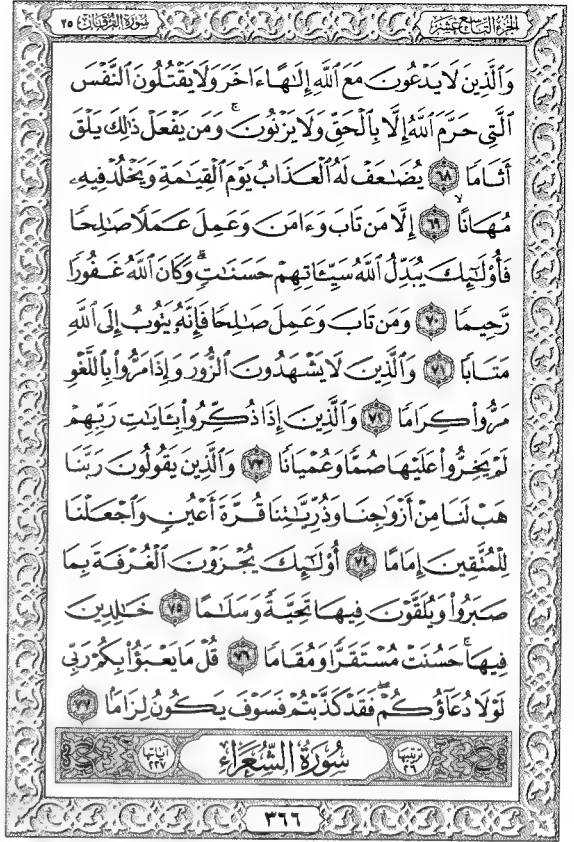 الجزء التاسع عشر
سورة الفرقان ٢٥
وَٱلَّذِينَ لَا يَدْعُونَ مَعَ ٱللَّهِ إِلَٰهًا ءَاخَرَ وَلَا يَقْتُلُونَ ٱلنَّفْسَ
ٱلَّتِى حَرَّمَ ٱللَّهُ إِلَّا بِٱلْحَقِّ وَلَا يَزْنُونَ ۚ وَمَن يَفْعَلْ ذَٰلِكَ يَلْقَ
أَثَامًا ٦٨ يُضَٰعَفْ لَهُ ٱلْعَذَابُ يَوْمَ ٱلْقِيَٰمَةِ وَيَخْلُدْ فِيهِۦ
مُهَانًا ٦٩ إِلَّا مَن تَابَ وَءَامَنَ وَعَمِلَ عَمَلًا صَٰلِحًا
فَأُو۟لَٰٓئِكَ يُبَدِّلُ ٱللَّهُ سَيِّـَٔاتِهِمْ حَسَنَٰتٍ ۗ وَكَانَ ٱللَّهُ غَفُورًا
رَّحِيمًا ٧٠ وَمَن تَابَ وَعَمِلَ صَٰلِحًا فَإِنَّهُۥ يَتُوبُ إِلَى ٱللَّهِ
مَتَابًا ٧١ وَٱلَّذِينَ لَا يَشْهَدُونَ ٱلزُّورَ وَإِذَا مَرُّوا۟ بِٱللَّغْوِ
مَرُّوا۟ كِرَامًا ٧٢ وَٱلَّذِينَ إِذَا ذُكِّرُوا۟ بِـَٔايَٰتِ رَبِّهِمْ
لَمْ يَخِرُّوا۟ عَلَيْهَا صُمًّا وَعُمْيَانًا ٧٣ وَٱلَّذِينَ يَقُولُونَ رَبَّنَا
هَبْ لَنَا مِنْ أَزْوَٰجِنَا وَذُرِّيَّٰتِنَا قُرَّةَ أَعْيُنٍ وَٱجْعَلْنَا
لِلْمُتَّقِينَ إِمَامًا ٧٤ أُو۟لَٰٓئِكَ يُجْزَوْنَ ٱلْغُرْفَةَ بِمَا
صَبَرُوا۟ وَيُلَقَّوْنَ فِيهَا تَحِيَّةً وَسَلَٰمًا ٧٥ خَٰلِدِينَ
فِيهَا ۚ حَسُنَتْ مُسْتَقَرًّا وَمُقَامًا ٧٦ قُلْ مَا يَعْبَؤُا۟ بِكُمْ رَبِّى
لَوْلَا دُعَآؤُكُمْ ۖ فَقَدْ كَذَّبْتُمْ فَسَوْفَ يَكُونُ لِزَامًۢا ٧٧
ترتيبها ٢٦ سُورَةُ الشُّعَرَاءِ آياتها ٢٢٧
٣٦٦